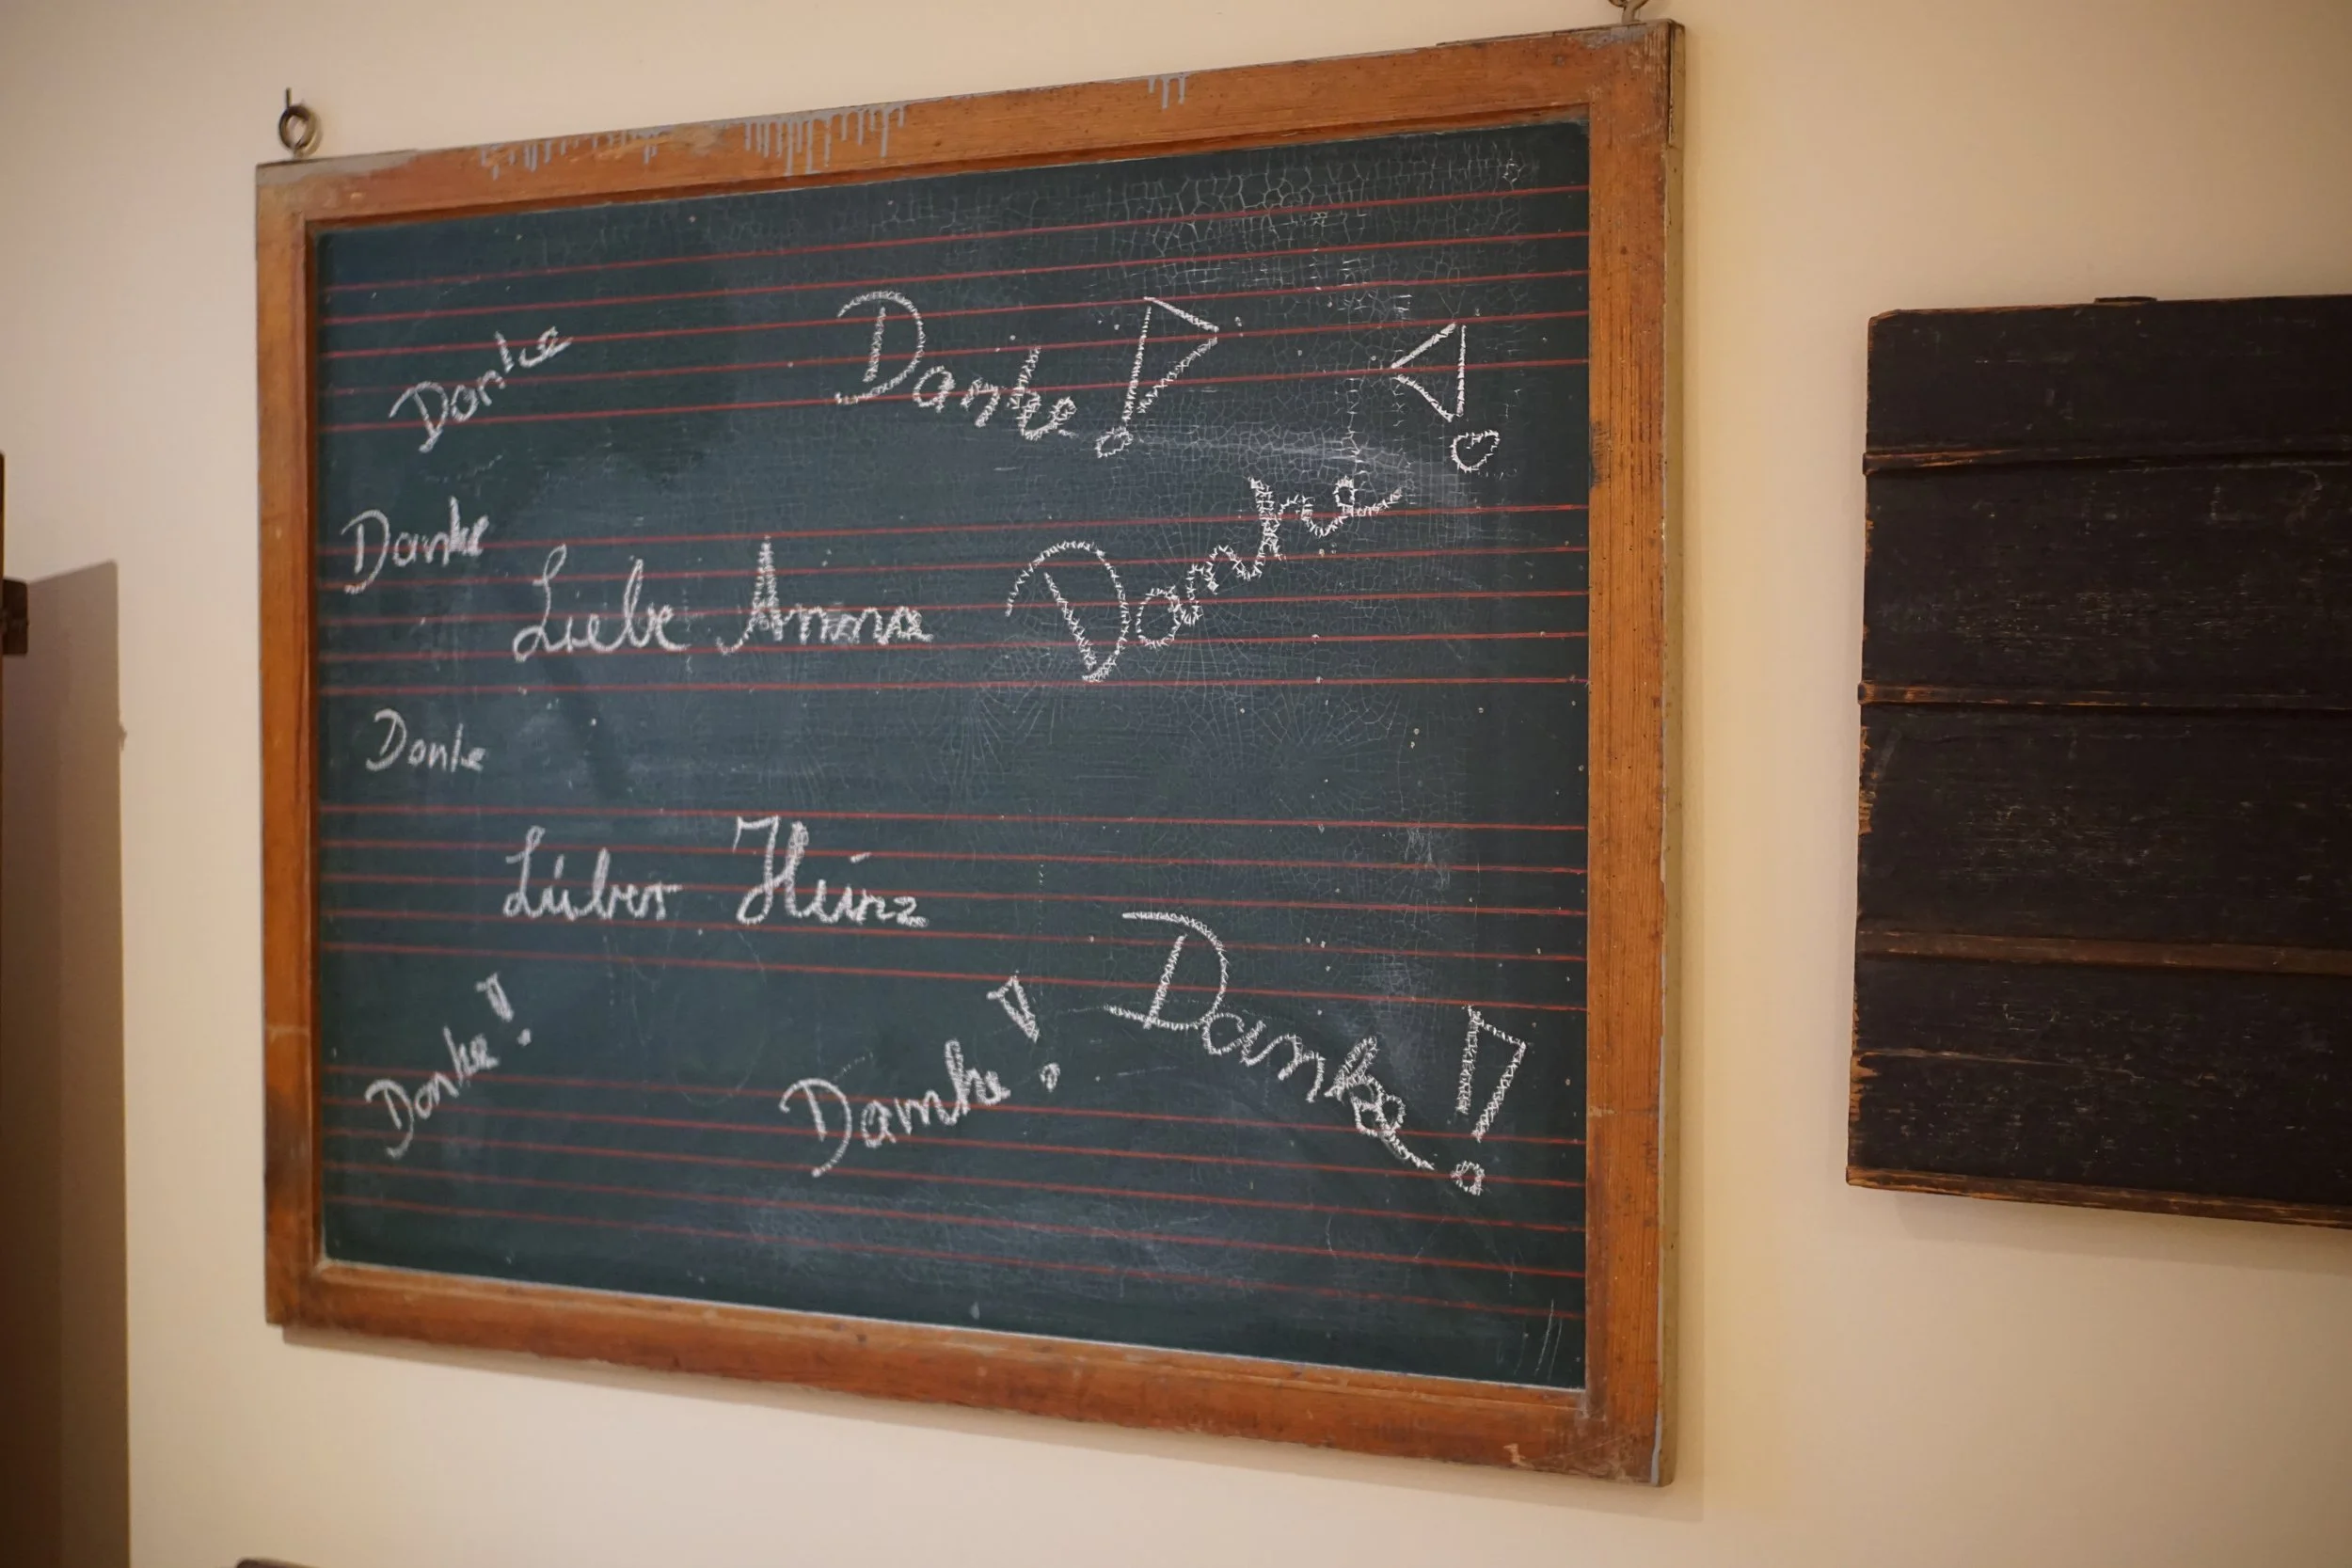 Danke
Danke!
!
Danke
Liebe Anna
Danke
Danke
Lieber Heinz
Danke!
Danke!
Danke!